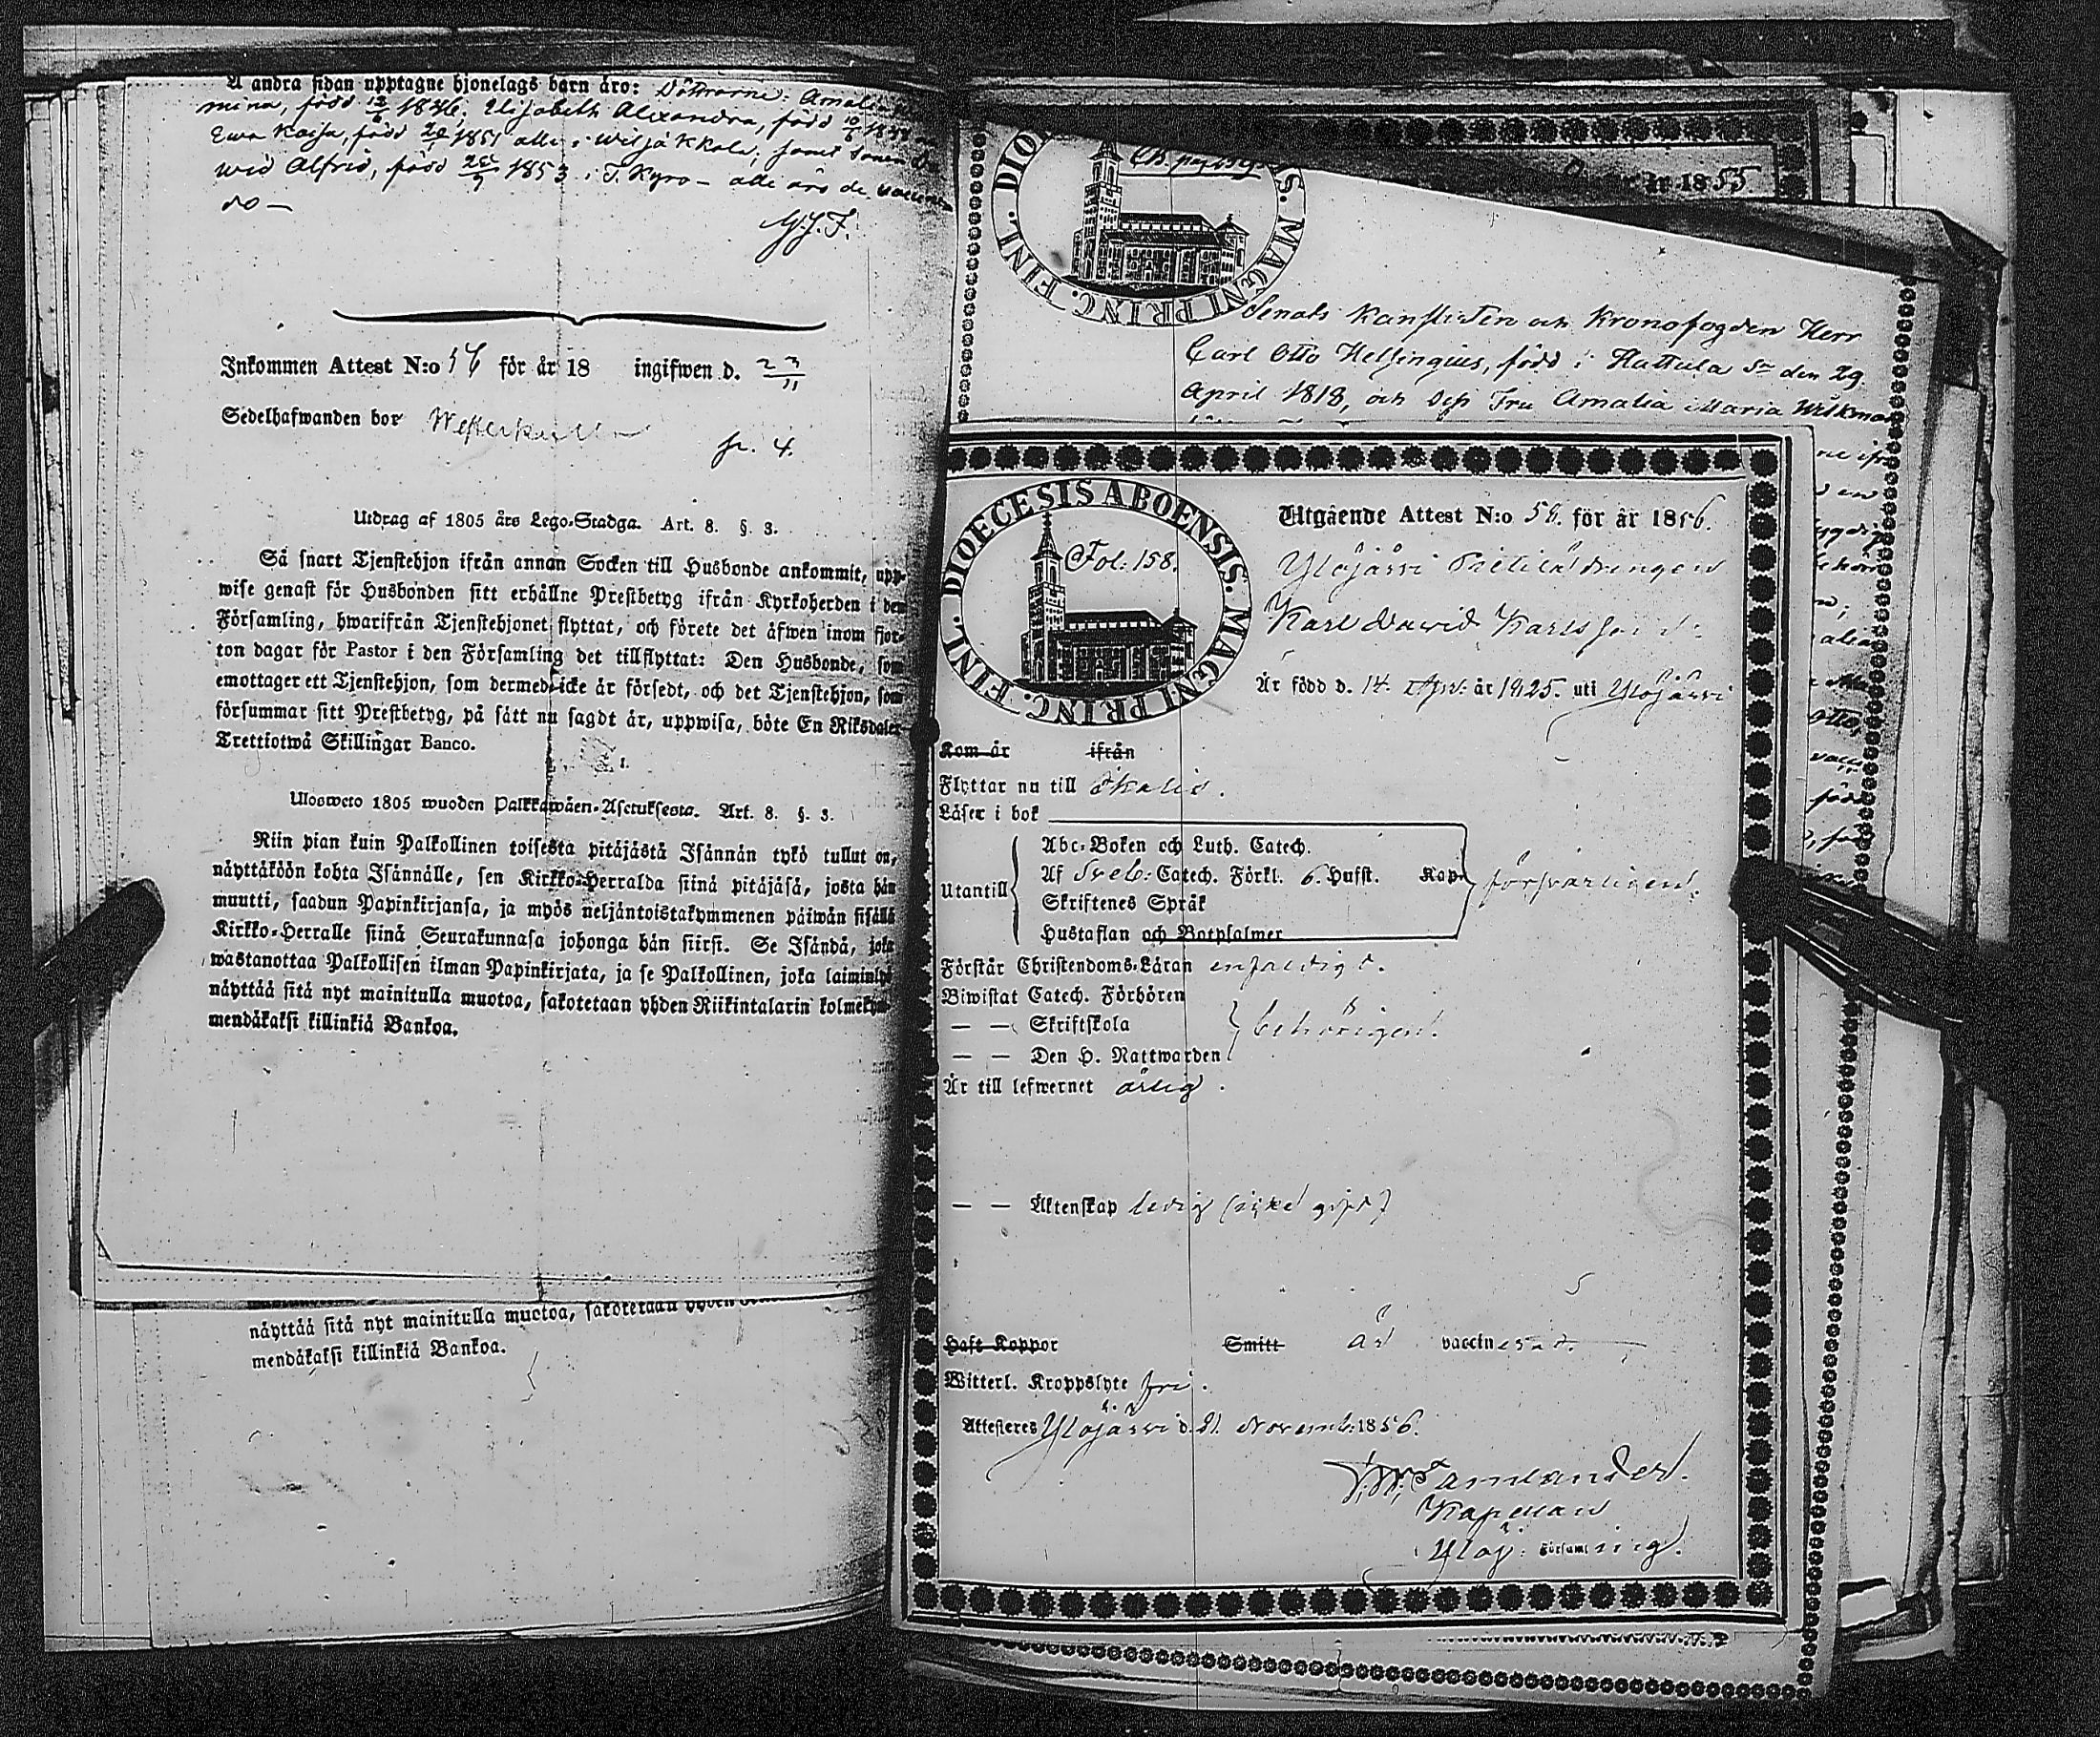 Å andra sidan upptagne hjonelags barn äro: Döttrarne: Amalia
mina, född 12/6 1846; Elisabeth Alexandra, född 10/6
Ewa Kaisa, född 1851 alla i Wiljakkala, samt sonen Da
wid Alfrid, född 1853 i T. Kyro – alla äro de vaccine
de –
Inkommen Attest N:o 56 för år 18 ingifwen d. 23/11
Sedelhafwanden bor
fr. 4.
Utdrag af 1805 års Lego-Stadga. Art. 8. §. 3.
Så snart Tjenstehjon ifrån annan Socken till Husbonde ankommit, upp-
wise genast för Husbonden sitt erhållne Prestbetyg ifrån Kyrkoherden i den
Församling, hwarifrån Tjenstehjonet flyttat, och förete det äfwen inom fjor-
ton dagar för Pastor i den Församling det tillflyttat: Den Husbonde, som
emottager ett Tjenstehjon, som dermed icke är försedt, och det Tjenstehjon, som
försummar sitt Prestbetyg, på sätt nu sagdt är, uppwisa, böte En Riksdaler
Trettiotwå Skillingar Banco.
Ulosweto 1805 wuoden Palkkawäen-Asetuksesta. Art. 8. §. 3.
Niin pian kuin Palkollinen toisesta pitäjästä Isännän tykö tullut on,
näyttäköön kohta Isännälle, sen Kirkko-Herralda siinä pitäjäsä, josta hän
muutti, saadun Papinkirjansa, ja myös neljäntoistakymmenen päiwän sisällä
Kirkko-Herralle siinä Seurakunnasa johonga hän siirsi. Se Isändä, joka
wastanottaa Palkollisen ilman Papinkirjata, ja se Palkollinen, joka laiminlyö
näyttää sitä nyt mainitulla muotoa, sakotetaan yhden Riikintalarin kolmekym-
mendäkaksi killinkiä Bankoa.
näyttää sitä nyt mainitulla muotoa, sakotetaan yhden
mendäkaksi killinkiä Bankoa.
år 1855
FINL. DIO IS. MAGNI PRINC.
Senats Kanslisten och Kronofogden Herr
Carl Otto Helsingius, född i Hattula Sn den 29
April 1818, och dess Fru Amalia Maria Wikman
DIOECESIS ABOENSIS. MAGNI PRINC. FINL.
Fol: 158.
Utgående Attest N:o 58. för år 1856.
Ylöjärvi
Karl Dawid Karlsson
Är född d. 14. Apr. år 1825. uti Ylöjärvi
Kom år ifrån
Flyttar nu till Ikalis.
Läser i bok
Utantill
Abc-Boken och Luth. Catech.
Af Sveb. Catech. Förkl. 6. Hufst. Kap. försvarligen.
Skriftenes Språk
Hustaflan och Botpsalmer
Förstår Christendoms-Läran enfaldigt.
Biwistat Catech. Förhören
— — Skriftskola behörigen.
— — Den H. Nattwarden
Är till lefwernet ärlig.
— — Äktenskap ledig (icke gift)
Haft Koppor Smitt är vaccinerad.
Witterl. Kroppslyte fri.
Attesteres Ylöjärvi d. 21. Novemb: 1856.
Kapellan
Ylöj: Församling.